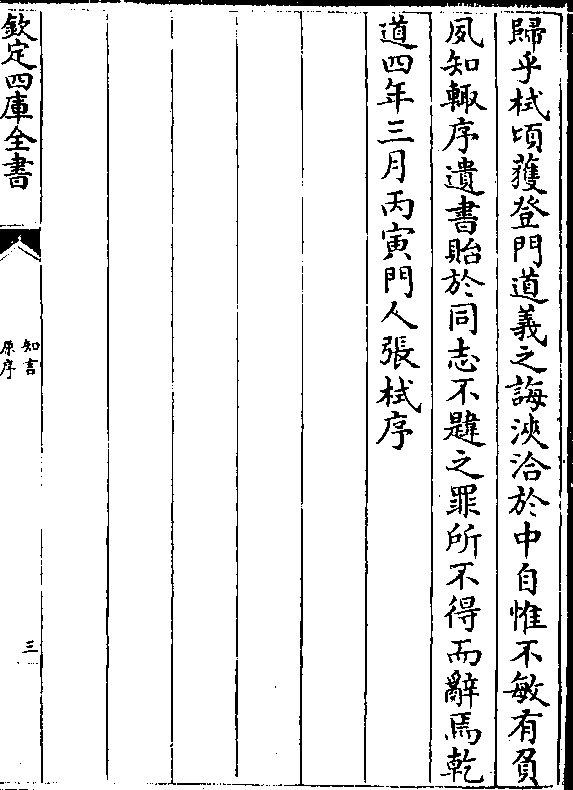 歸乎栻頃獲登門道義之誨浹洽於中自惟不敏有負
夙知輙序遺書貽於同志不韙之罪所不得而辭焉乾
道四年三月丙寅門人張栻序
欽定四庫全書
知言
原序
三